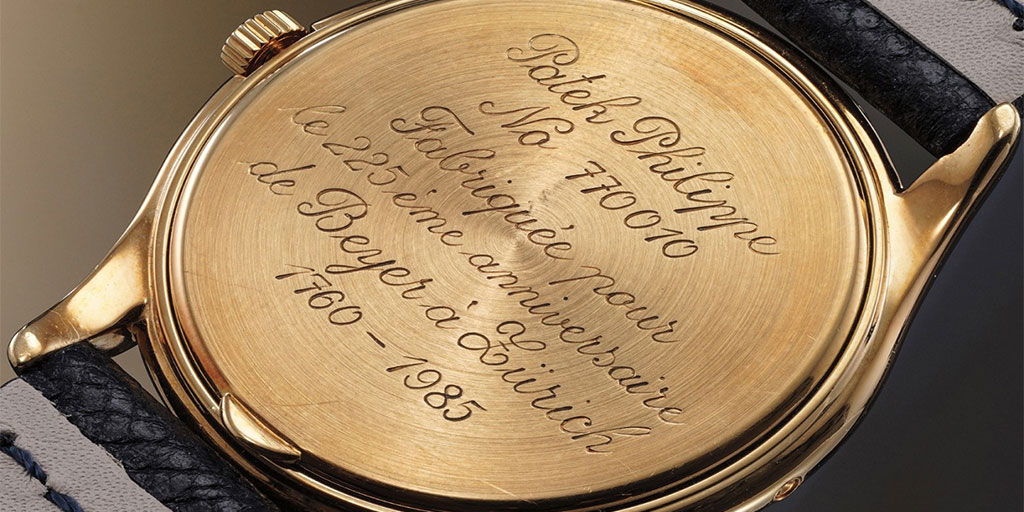 Patek Philippe
No 770010
Fabriquée pour
le 225ème anniversaire
de Beyer à Zürich
1760 - 1985